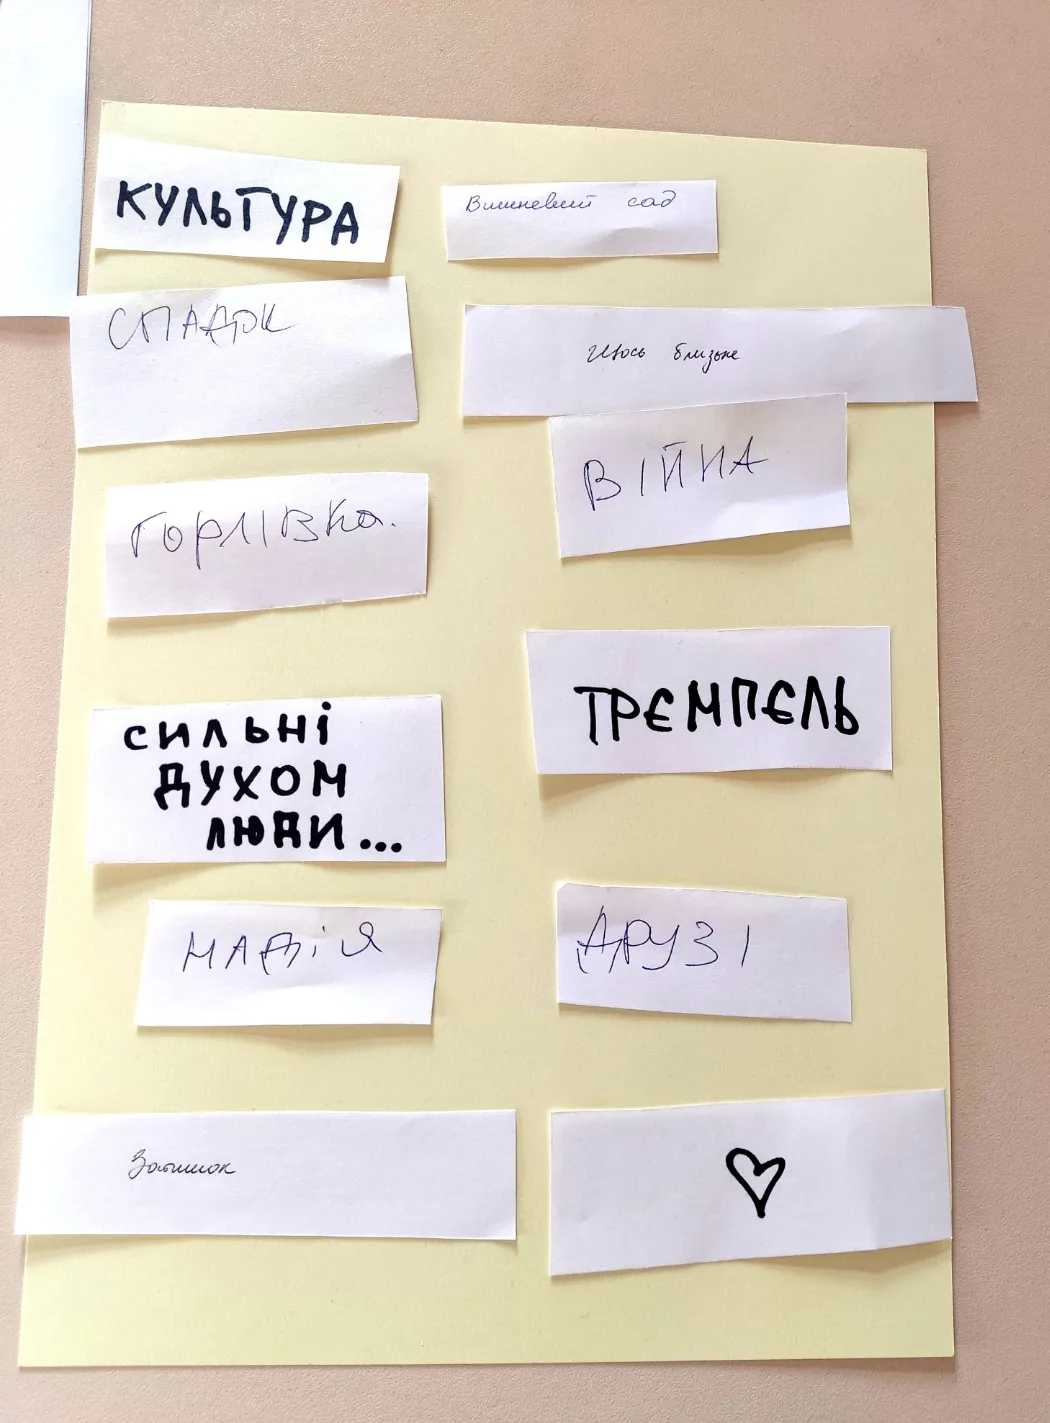 КУЛЬТУРА
Вишневий сад
СПАДОК
Щось близьке
ВІЙНА
ГОРЛІВКа.
ТРЄМПЄЛЬ
СИЛЬНІ
ДУХОМ
ЛЮДИ...
НАДІЯ
ДРУЗІ
Затишок